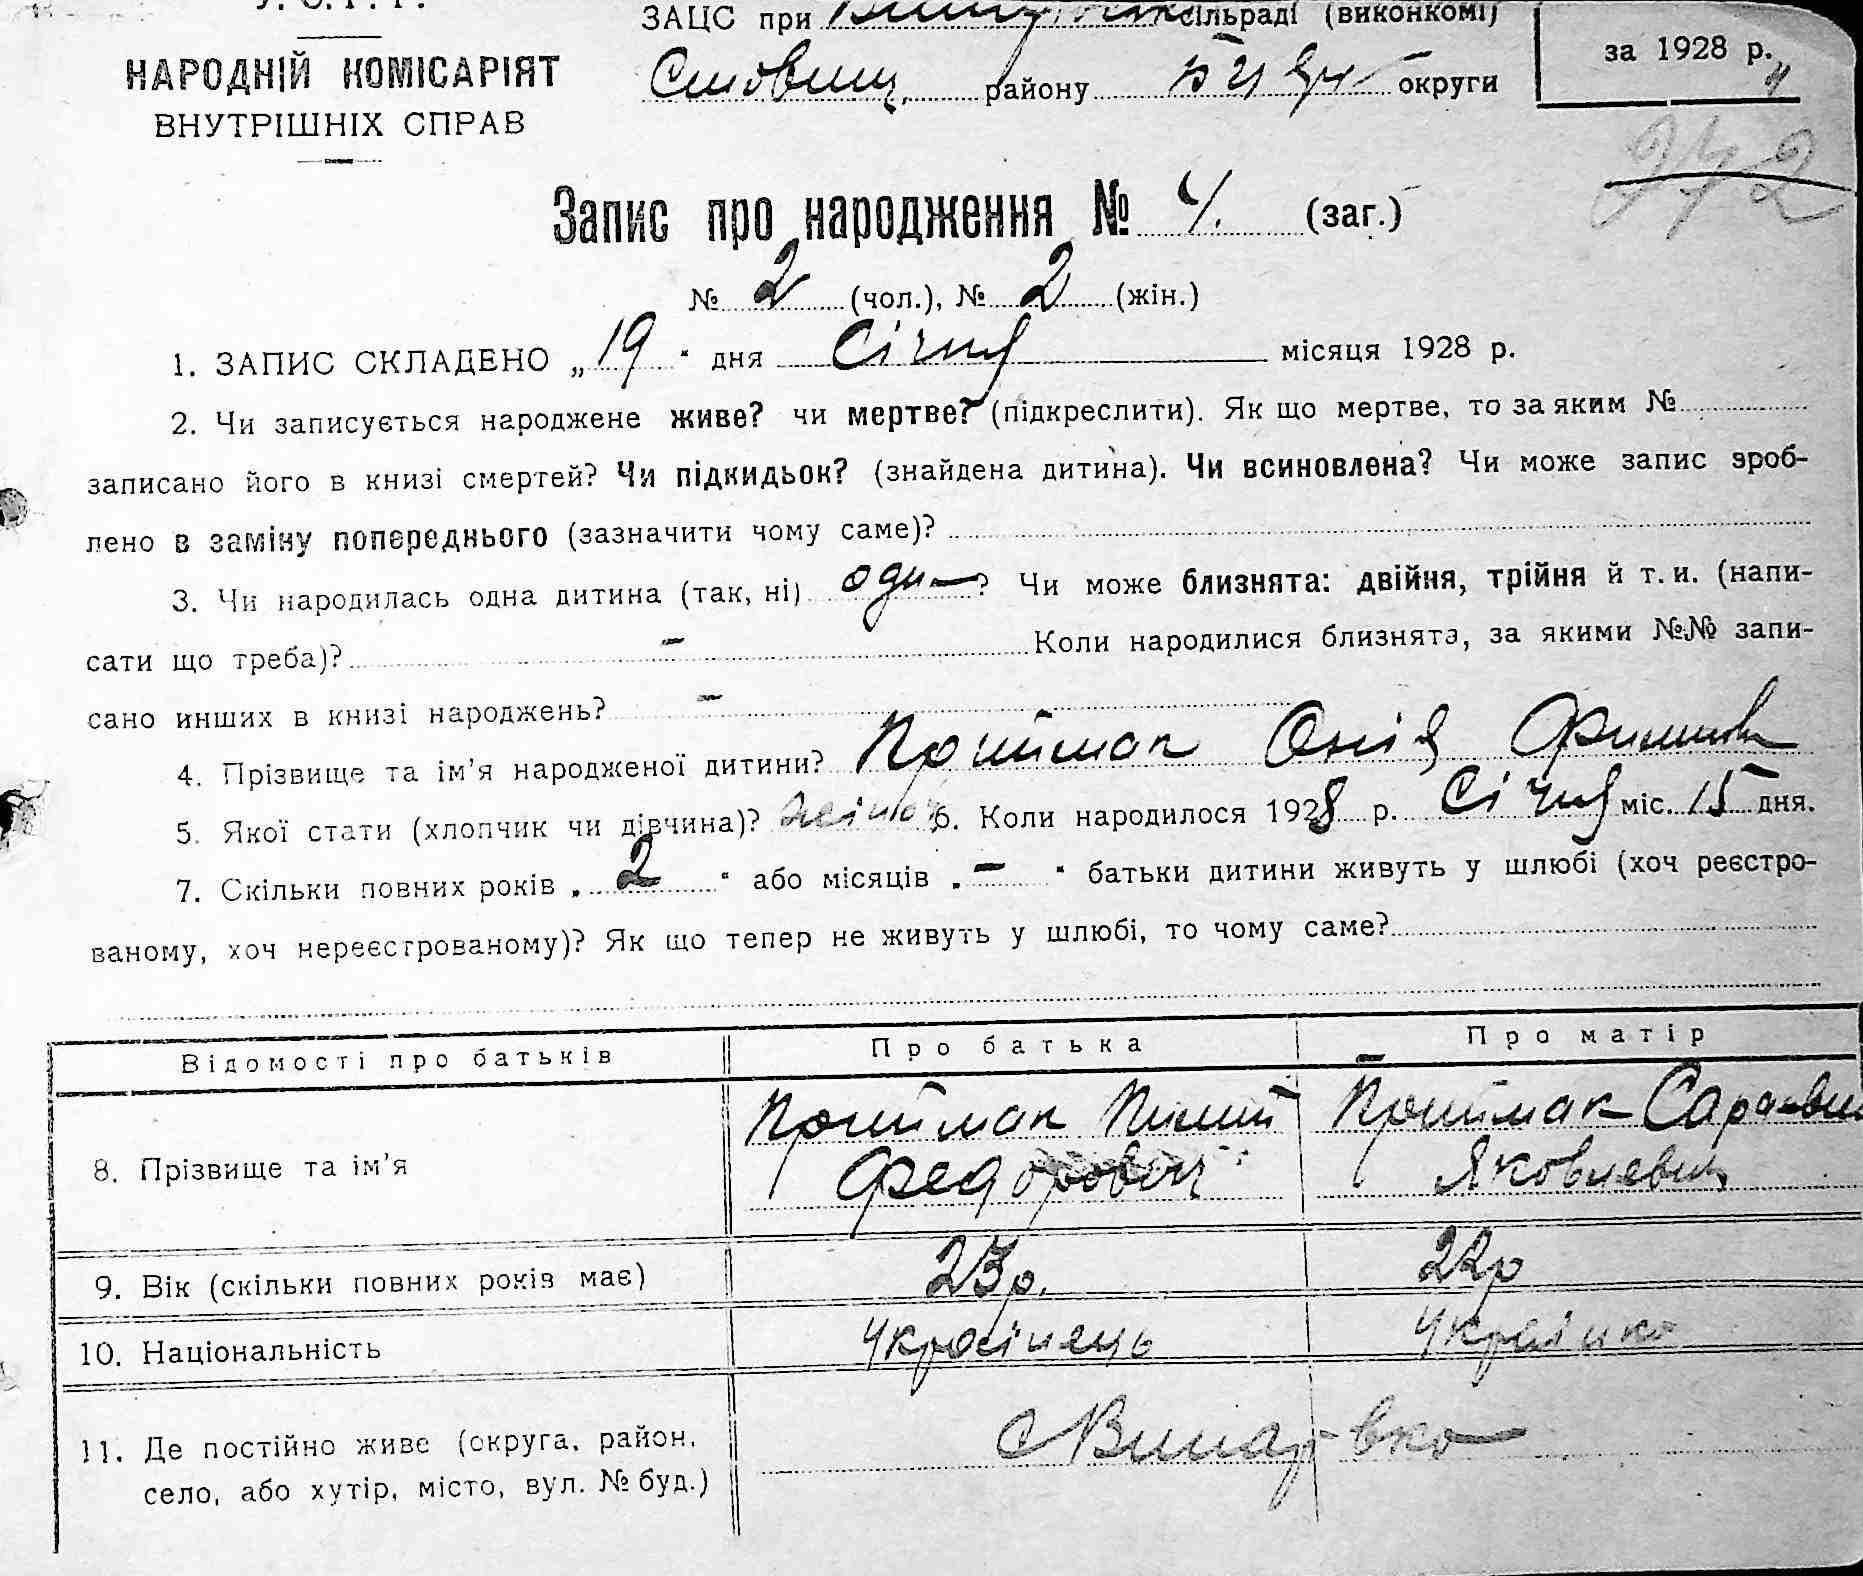 У. С. Р. Р.
НАРОДНІЙ КОМІСАРІЯТ
ВНУТРІШНІХ СПРАВ
ЗАЦС при сільраді (виконкомі)
Ставищ. району округи
за 1928 р.
4
342
Запис про народження № 4. (заг.)
№ 2 (чол.), № 2 (жін.)
1. ЗАПИС СКЛАДЕНО „19" дня Січня місяця 1928 р.
2. Чи записується народжене живе? чи мертве? (підкреслити). Як що мертве, то за яким №
записано його в книзі смертей? Чи підкидьок? (знайдена дитина). Чи всиновлена? Чи може запис зроб-
лено в заміну попереднього (зазначити чому саме)?
3. Чи народилась одна дитина (так, ні) одн—? Чи може близнята: двійня, трійня й т. и. (напи-
сати що треба)? – Коли народилися близнята, за якими №№ запи-
сано инших в книзі народжень? –
4. Прізвище та ім'я народженої дитини? Приймак
5. Якої стати (хлопчик чи дівчина)? 6. Коли народилося 1928 р. Січня міс. 15 дня.
7. Скільки повних років „2" або місяців „–" батьки дитини живуть у шлюбі (хоч реєстро-
ваному, хоч нереєстрованому)? Як що тепер не живуть у шлюбі, то чому саме?
Відомості про батьків Про батька Про матір
8. Прізвище та ім'я Приймак Приймак
Федорович Яковлевна
9. Вік (скільки повних років має) 23р. 22р
10. Національність Українець Українка
11. Де постійно живе (округа, район, с Винарівка
село, або хутір, місто, вул. № буд.)